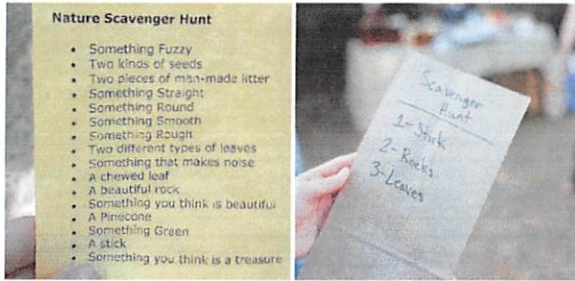 Nature Scavenger Hunt
• Something Fuzzy
• Two kinds of seeds
• Two pieces of man-made litter
• Something Straight
• Something Round
• Something Smooth
• Something Rough
• Two different types of leaves
• Something that makes noise
• A chewed leaf
• A beautiful rock
• Something you think is beautiful
• A Pinecone
• Something Green
• A stick
• Something you think is a treasure
Scavenger
Hunt
1- Stick
2- Rocks
3- Leaves